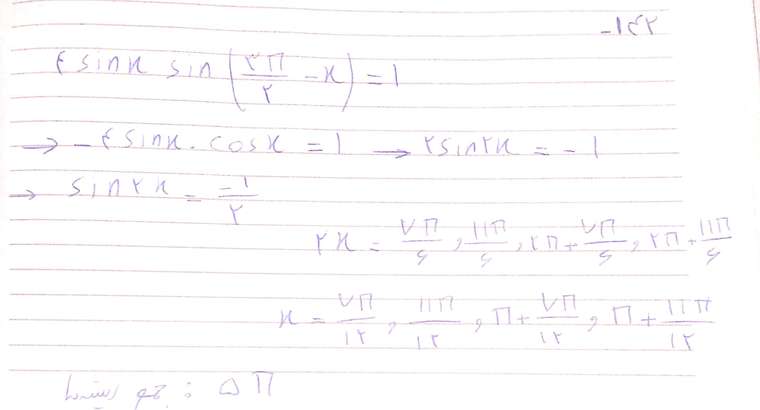 -۱۴۲
۴ sinx sin(۳π/۲ - x) = ۱
→ -۴ sinx . cosx = ۱ → ۲ sin۲x = -۱
→ sin۲x = -۱/۲
۲x = ۷π/۶ , ۱۱π/۶ , ۲π + ۷π/۶ , ۲π + ۱۱π/۶
x = ۷π/۱۲ , ۱۱π/۱۲ , π + ۷π/۱۲ , π + ۱۱π/۱۲
۵π :